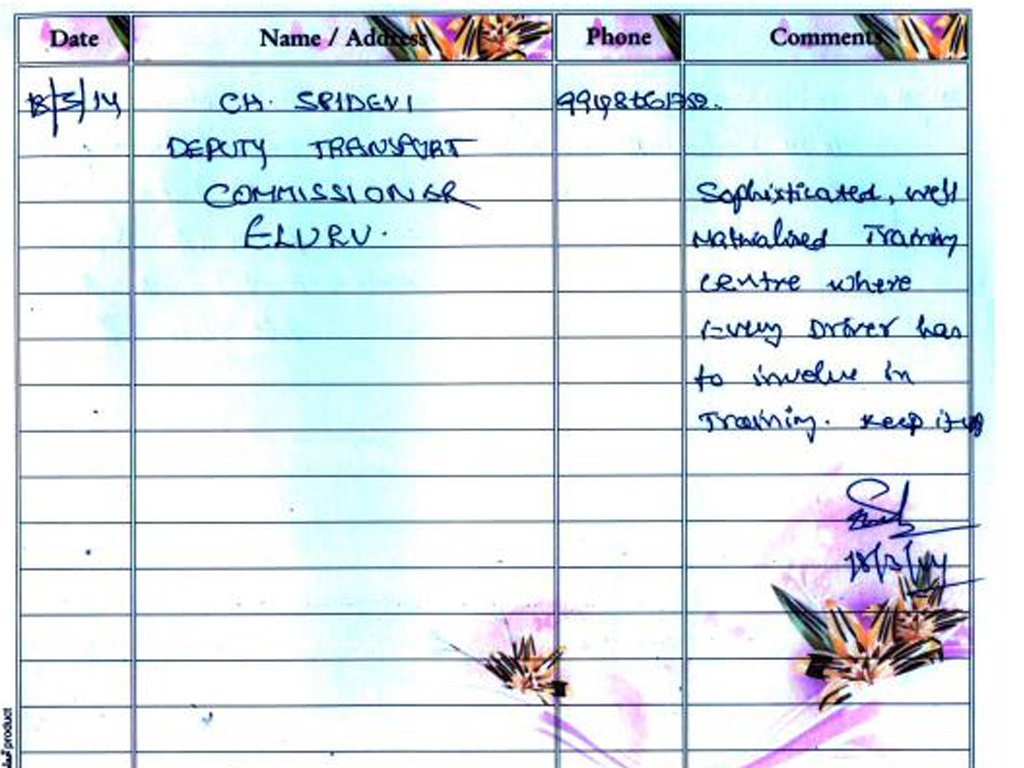 Date Name / Address Phone Comments
18/3/14 CH. SRIDEVI
DEPUTY TRANSPORT
COMMISSIONER
ELURU.
Sophisticated, well
Training
Centre where
Every Driver has
to involve in
Training. Keep it up
18/3/14
product